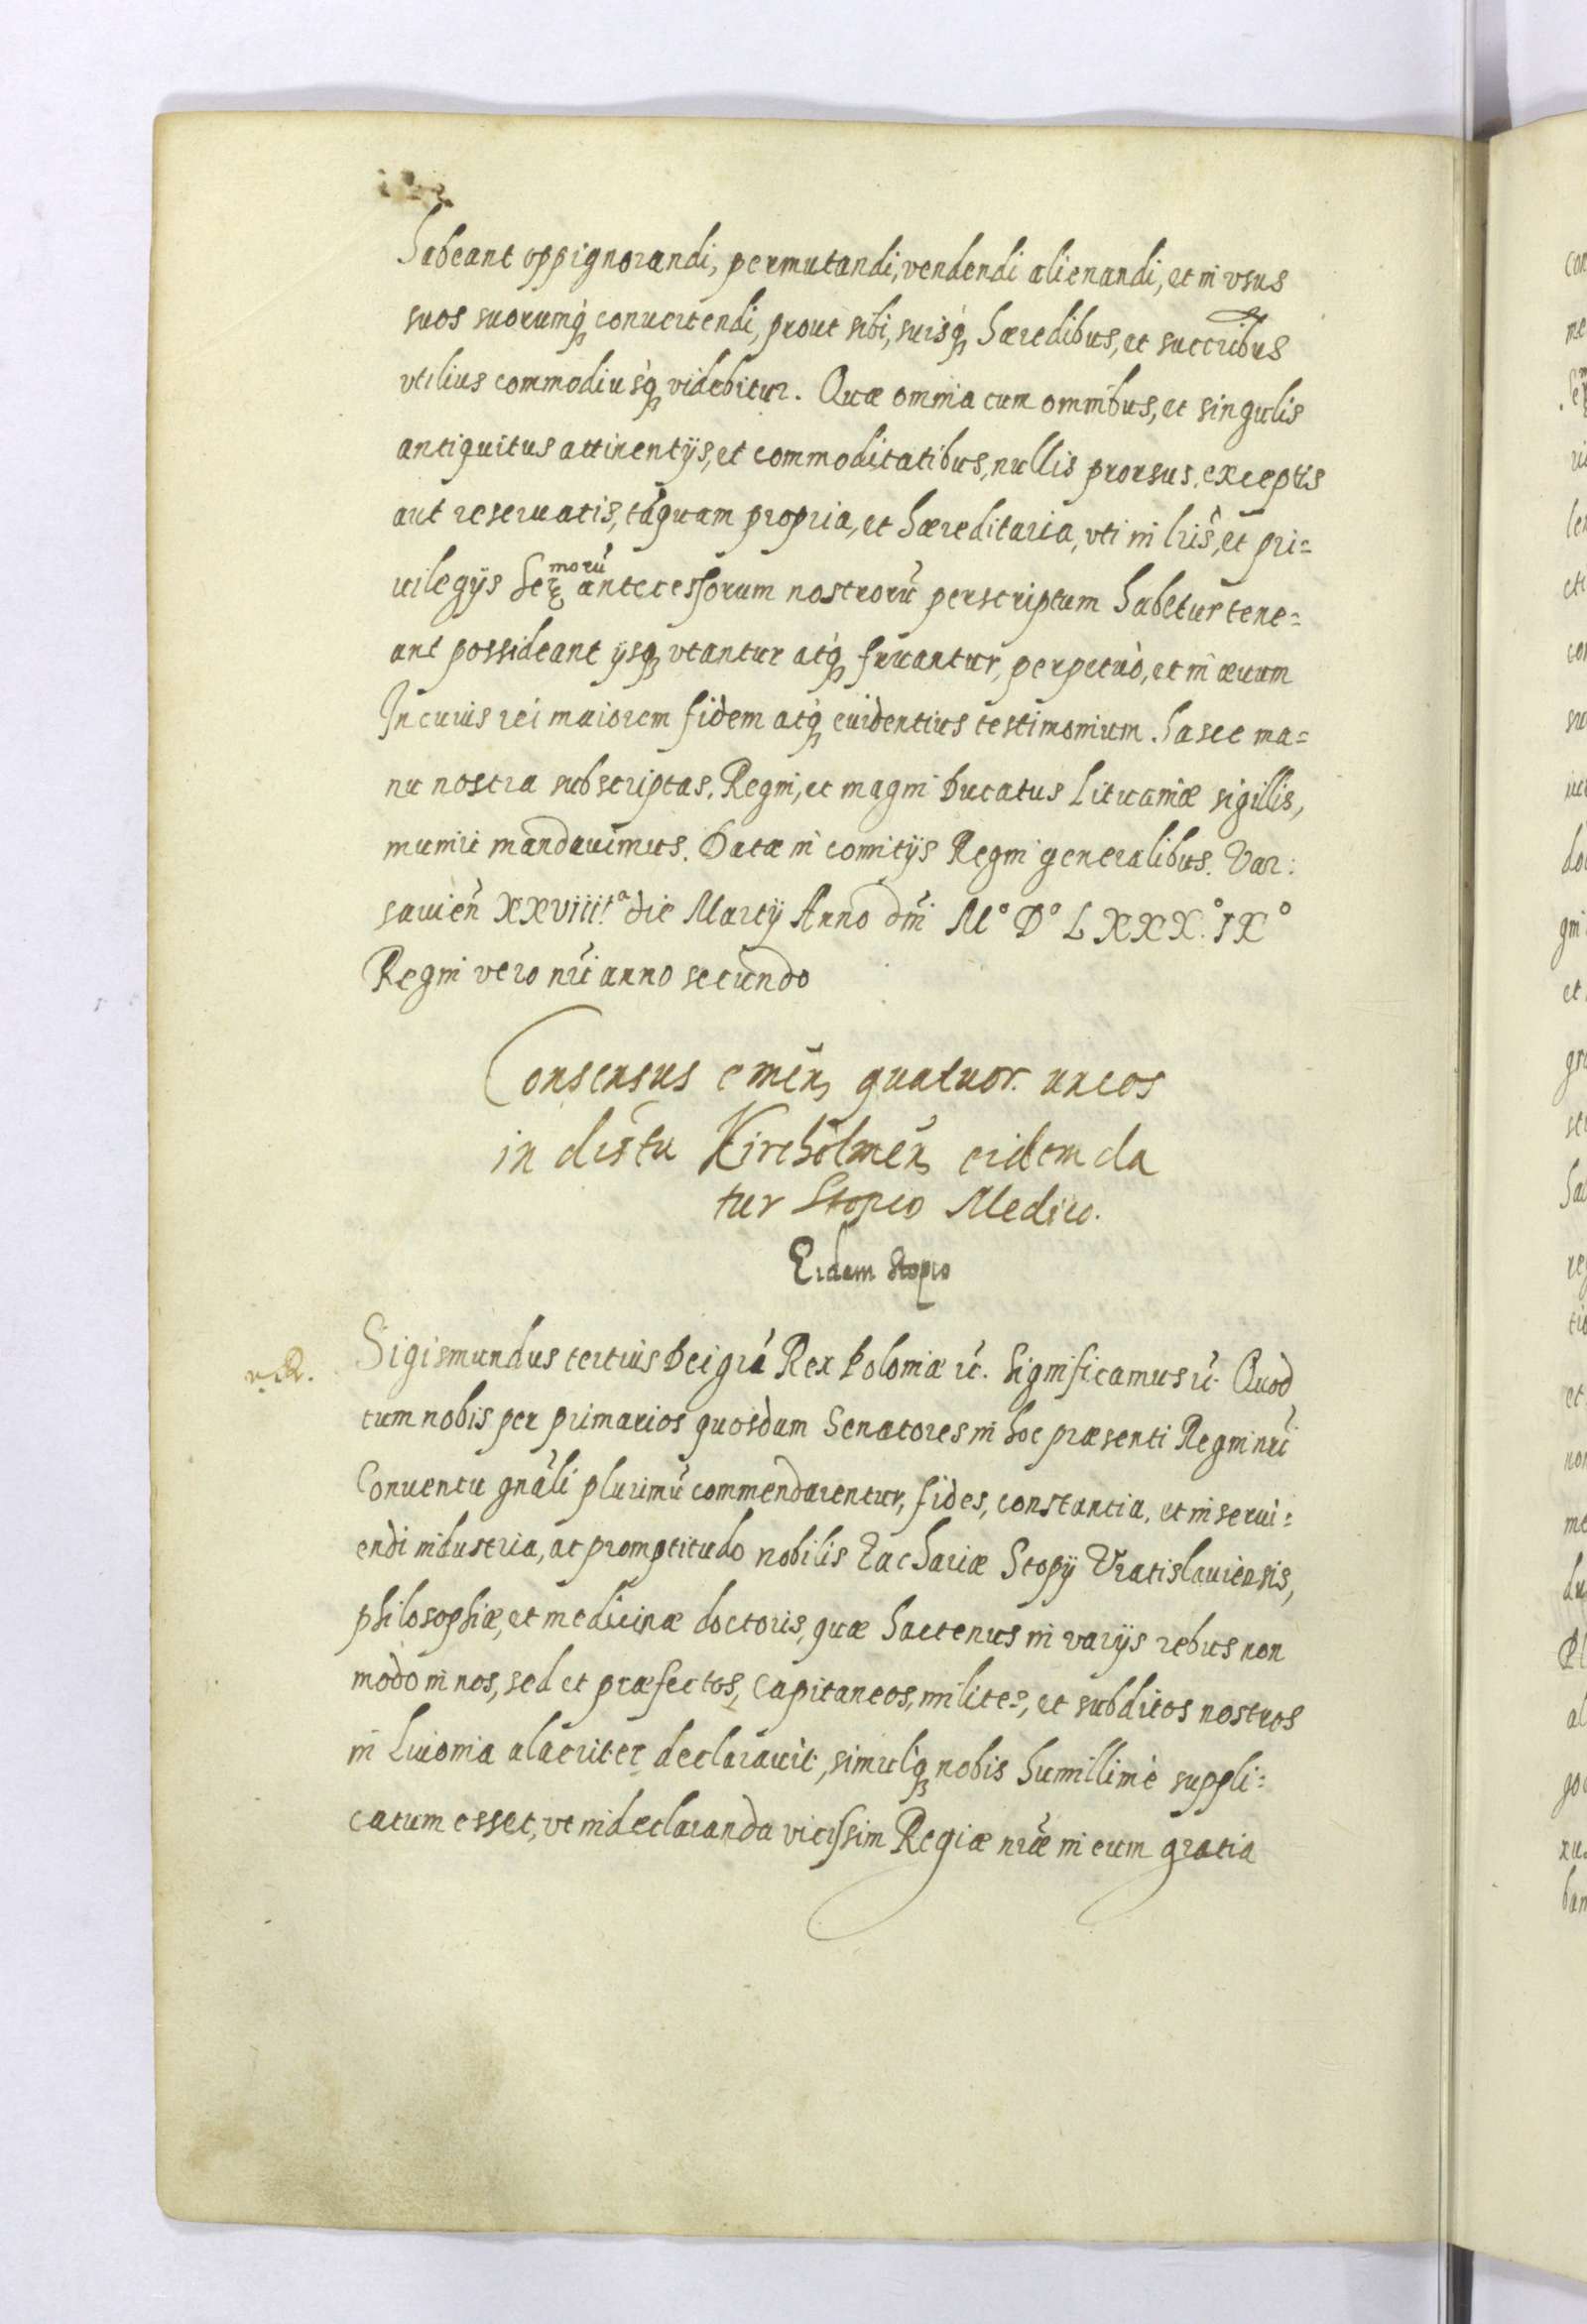 habeant oppignorandi, permutandi, vendendi alienandi, et in vsus
suos suorumq́ꝫ conuertendi, prout sibi, suisq́ꝫ hæredibus, et succribus
vtilius commodiusq́ꝫ videbitur. Quæ omnia cum omnibus, et singulis
antiquitus attinentijs, et commoditatibus, nullis prorsus exceptis
aut reseruatis, tãquam propria, et hæreditaria, vti in lris̃, et pri=
uilegijs Ser moru᷃ antecessorum nostroru᷃ perscriptum habetur tene=
ant possideant ijsqꝫ vtantur atq́ꝫ fruantur, perpetuò, et in æuum
In cuius rei maiorem fidem atq́ꝫ euidentius testimonium. hasce ma=
nu nostra subscriptas. Regni, et magni Ducatus Lituaniæ sigillis,
muniri mandauimus. Datæ in comitijs Regni generalibus. Var:
sauien᷃ XXVIIII.ª die Martij Anno dni᷃ M° D° LXXX.° IX°
Regni vero nri᷃ anno secundo
Consensus emen, quatuor uncos
in distu Kircholmen, eidem da
tur Stopio Medico.
Eidem Stopio
Sigismundus tertius Dei gra᷃ Rex Poloniæ rc᷃. Significamus rc᷃. Quod
cum nobis per primarios quosdam Senatores in hoc præsenti Regni nri᷃
Conuentu gnãli plurimu᷃ commendarentur, fides, constantia, et in serui=
endi industria, ac promptitudo nobilis Zachariæ Stopij Vratislauiensis,
philosophiæ, et medicinæ doctoris, quæ hactenus in varijs rebus non
modo in nos, sed et præfectos, Capitaneos, milites, et subditos nostros
in Liuonia alacriter declarauit, simulq́ꝫ nobis humillimè suppli=
catum esset, vt in declaranda vicissim Regiæ nræ᷃ in eum gratia